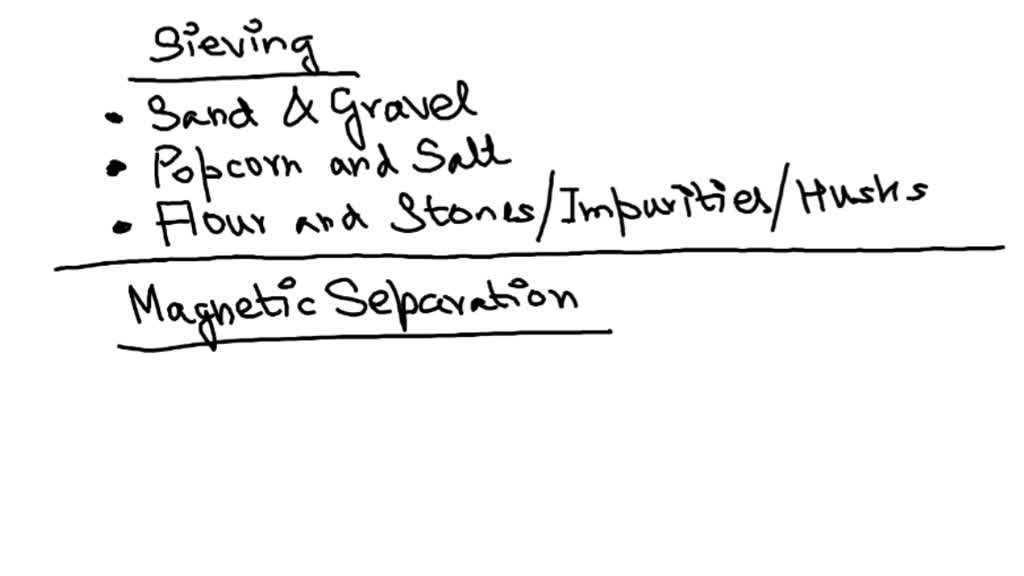 Sieving
• Sand & Gravel
• Popcorn and Salt
• Flour and Stones/Impurities/Husks
Magnetic Separation